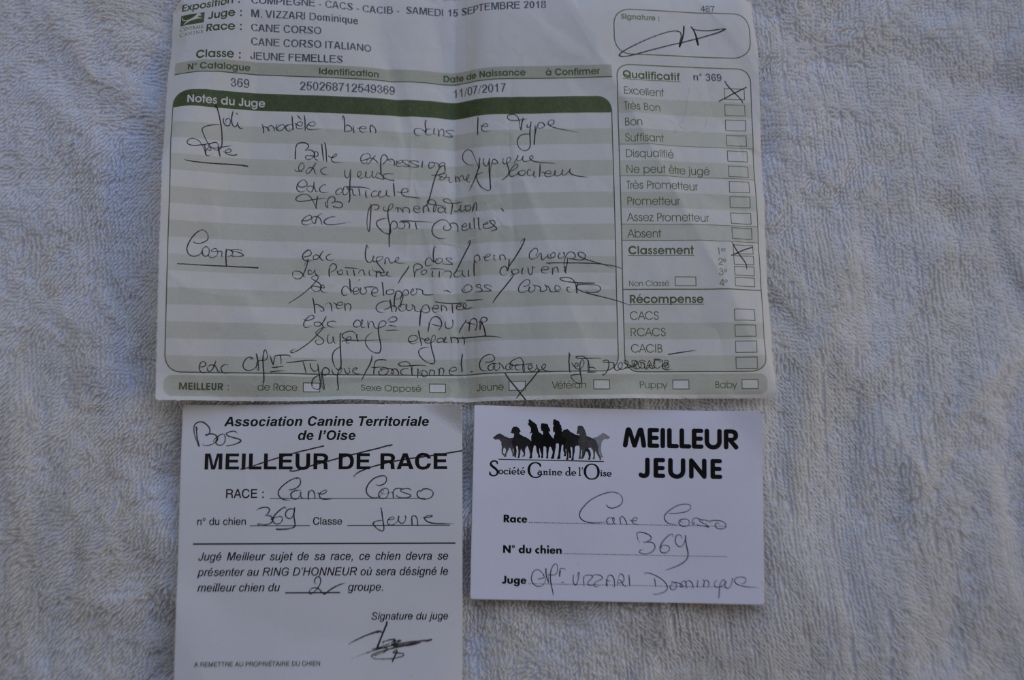 Exposition : COMPIEGNE - CACS - CACIB - SAMEDI 15 SEPTEMBRE 2018
Juge : M. VIZZARI Dominique
Race : CANE CORSO
CANE CORSO ITALIANO
Classe : JEUNE FEMELLES
487
Signature :
N° Catalogue Identification Date de Naissance à Confirmer
369 250268712549369 11/07/2017
Notes du Juge
Joli modèle bien dans le Type
Tête Belle expression Typique
exc yeux forme/couleur
exc attitude
TB pigmentation
exc port oreilles
Corps exc ligne dos/rein/croupe
La Poitrine/Poitrail doivent
se developper - oss/correct
bien charpentée
exc ang° AV/AR
Sujet elegant
exc Typique/Fonctionnel. Caractère
MEILLEUR : de Race Sexe Opposé Jeune Vétéran Puppy Baby
Qualificatif n° 369
Excellent
Très Bon
Bon
Suffisant
Disqualifié
Ne peut être jugé
Très Prometteur
Prometteur
Assez Prometteur
Absent
Classement 1er
2e
3e
Non Classé 4e
Récompense
CACS
RCACS
CACIB
Association Canine Territoriale
de l'Oise
BOS
MEILLEUR DE RACE
RACE : Cane Corso
n° du chien 369 Classe Jeune
Jugé Meilleur sujet de sa race, ce chien devra se
présenter au RING D'HONNEUR où sera désigné le
meilleur chien du 2 groupe.
Signature du juge
A REMETTRE AU PROPRIÉTAIRE DU CHIEN
Société Canine de l'Oise
MEILLEUR
JEUNE
Race Cane Corso
N° du chien 369
Juge Mr. VIZZARI Dominique